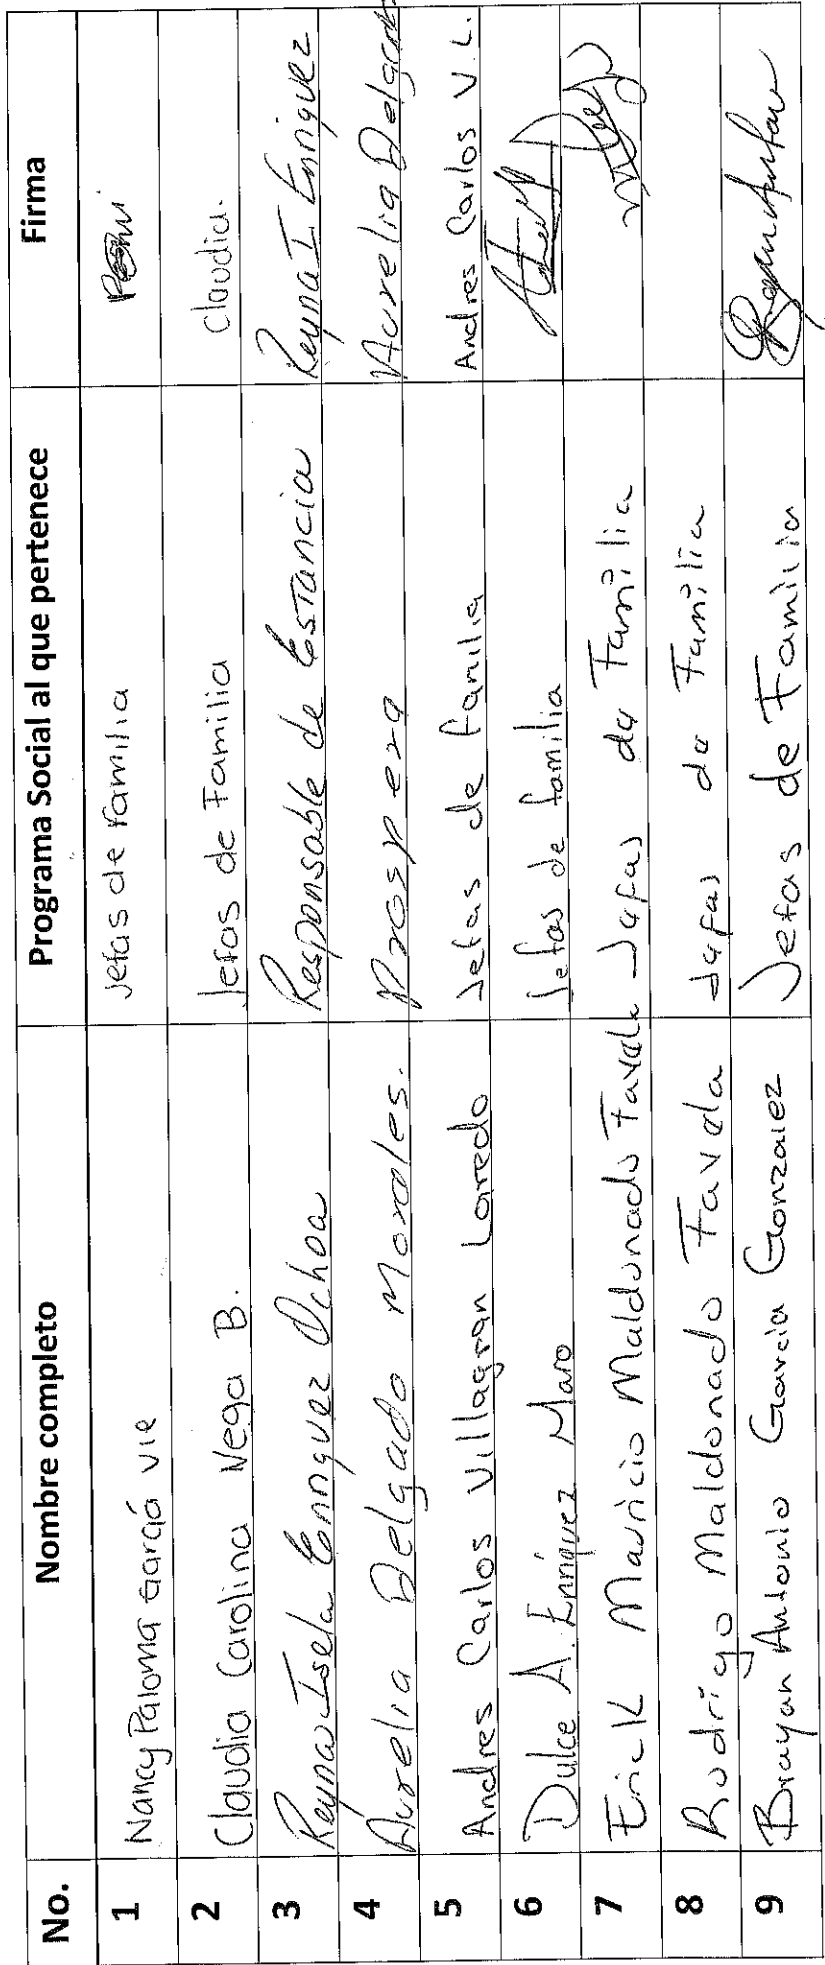 No. Nombre completo Programa Social al que pertenece Firma
1 Nancy Paloma García vie Jefas de familia
2 Claudia Carolina Vega B. Jefas de Familia Claudia.
3 Reyna Isela Enriquez Ochoa Responsable de Estancia Reyna I Enriquez
4 Aurelia Delgado Morales. Prospera Aurelia Delgado
5 Andres Carlos Villagran Loredo Jefas de familia Andres Carlos V. L.
6 Dulce A. Enriquez Maro Jefas de familia
7 Erick Mauricio Maldonado Favela Jefas de Familia
8 Rodrigo Maldonado Favela Jefas de Familia
9 Brayan Antonio Garcia Gonzalez Jefas de Familia